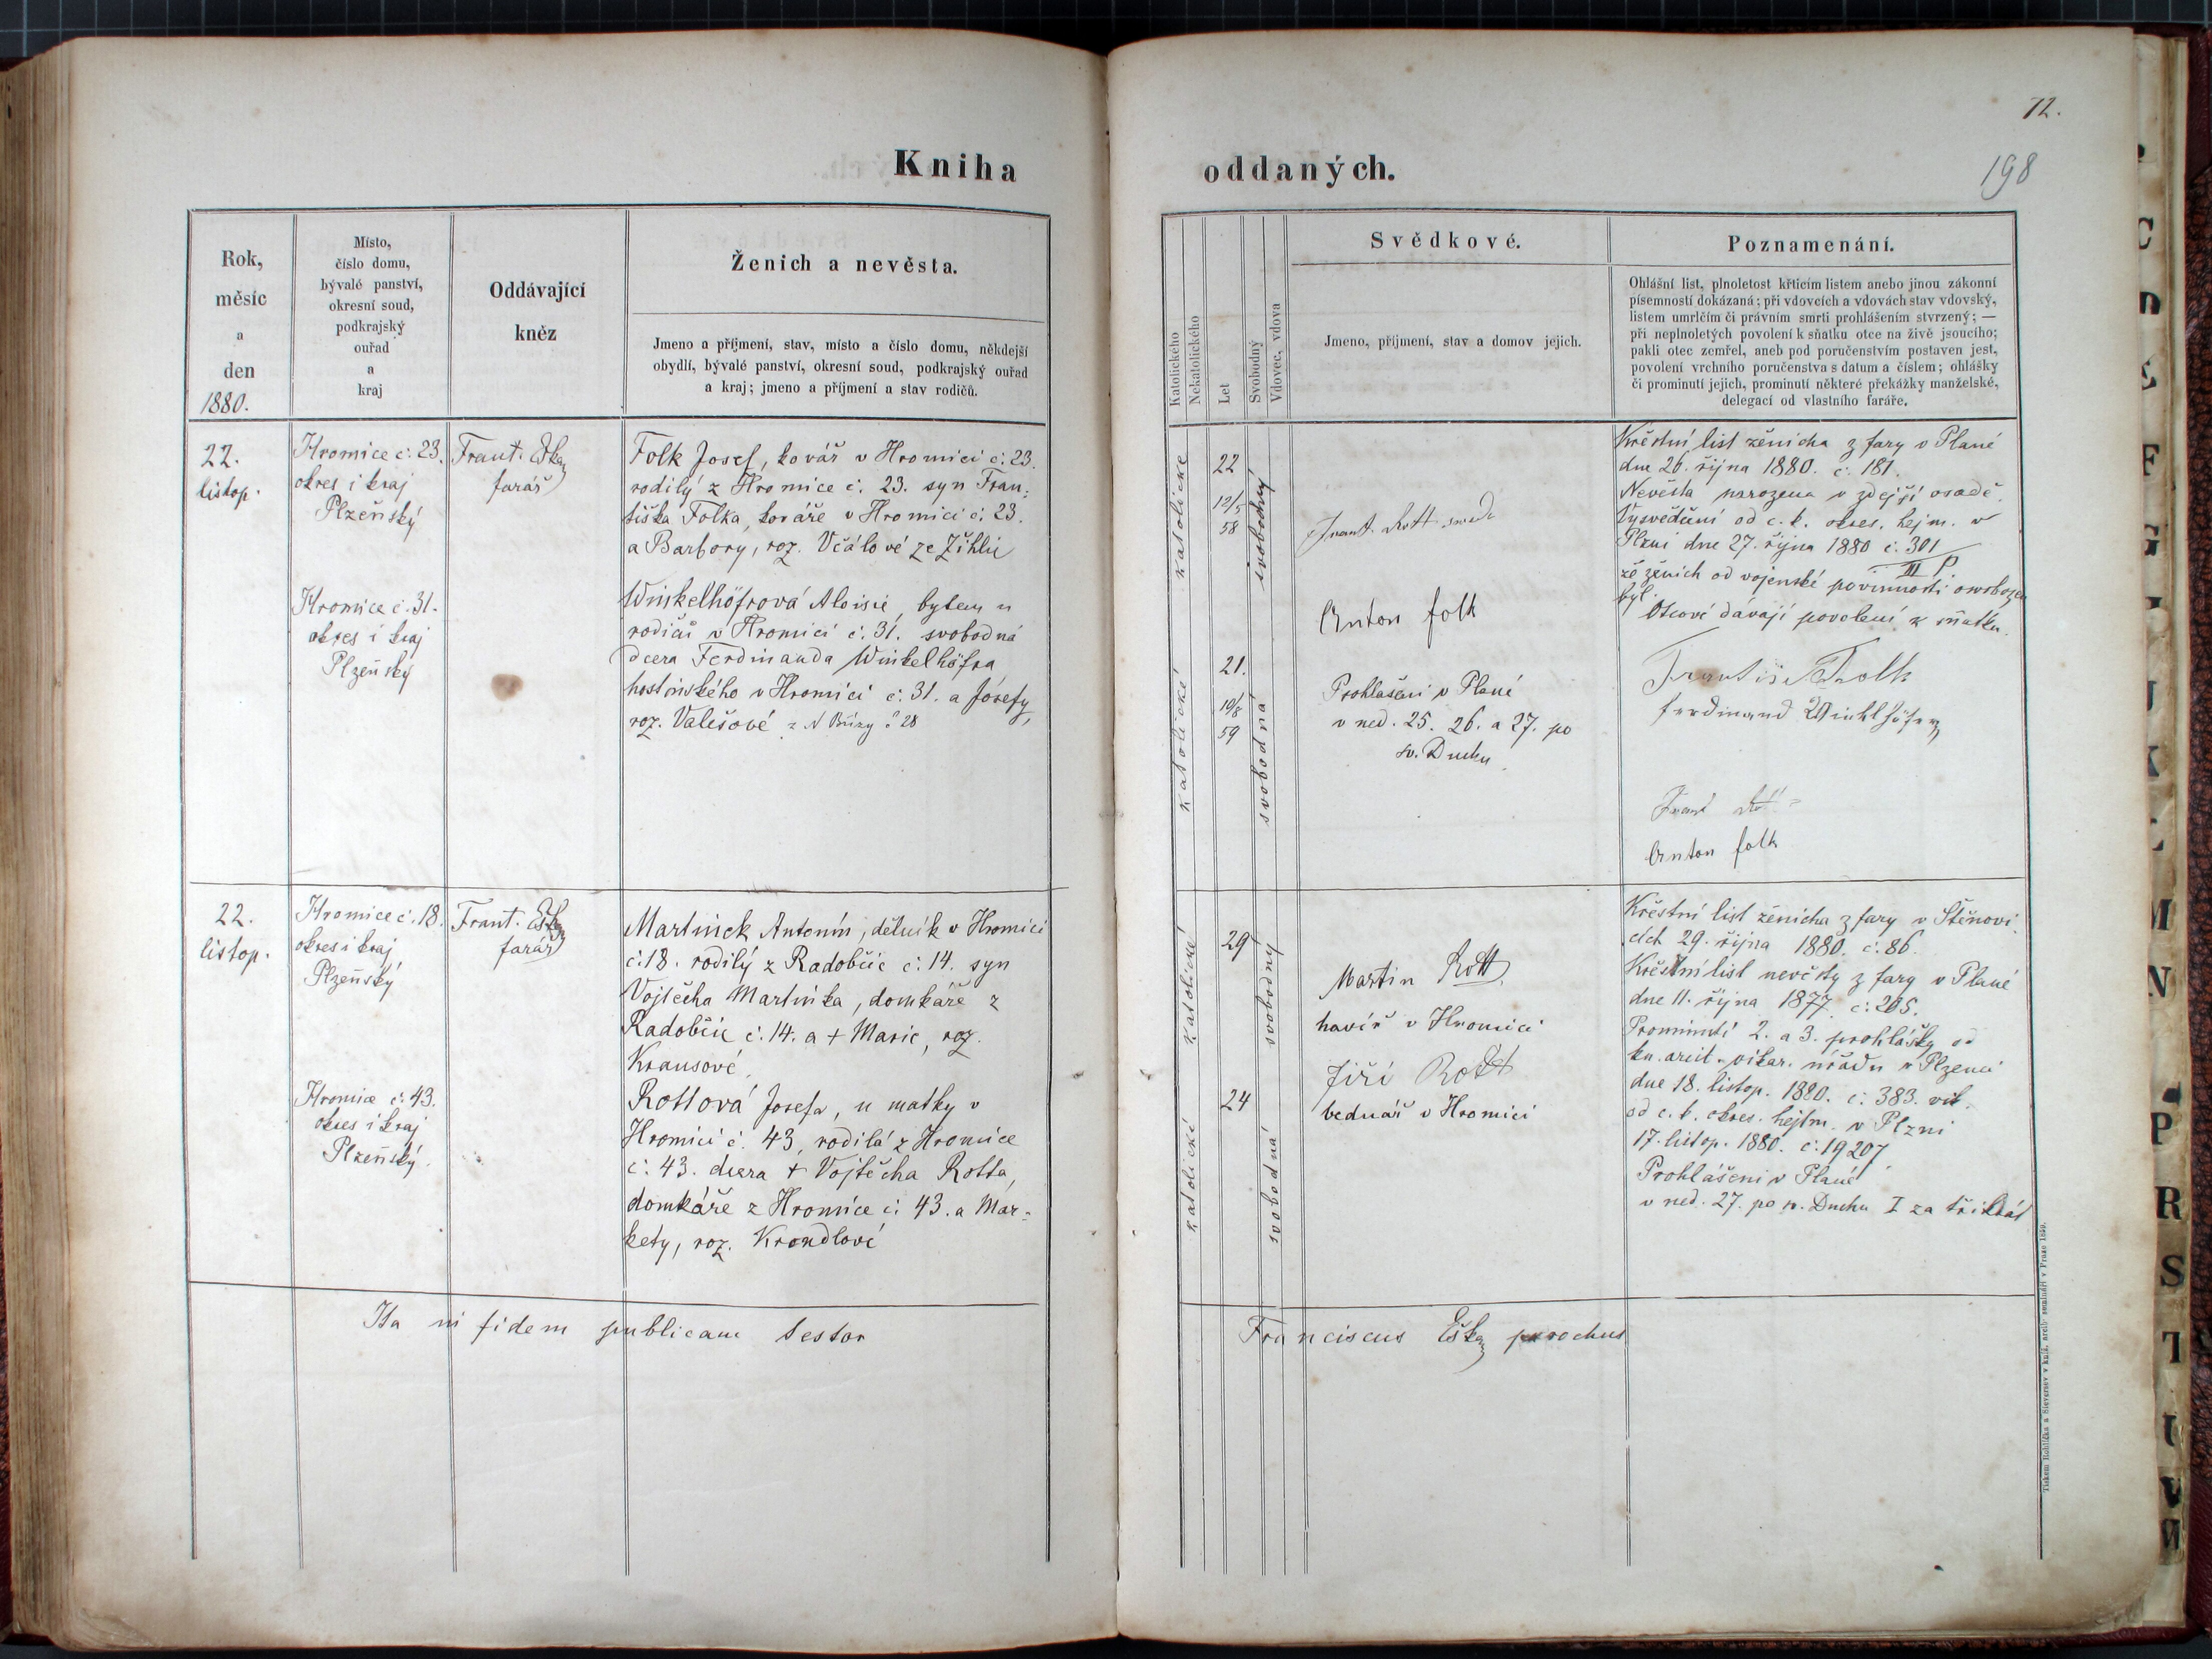 72.
198
Kniha oddaných.
Rok,
měsíc
a
den
1880.
Místo,
číslo domu,
bývalé panství,
okresní soud,
podkrajský
ouřad
a
kraj
Oddávající
kněz
Ženich a nevěsta.
Jmeno a příjmení, stav, místo a číslo domu, někdejší
obydlí, bývalé panství, okresní soud, podkrajský ouřad
a kraj; jmeno a příjmení a stav rodičů.
Katolického
Nekatolického
Let
Svobodný
Vdovec, vdova
Svědkové.
Jmeno, příjmení, stav a domov jejich.
Poznamenání.
Ohlášní list, plnoletost křticím listem anebo jinou zákonní
písemností dokázaná; při vdovcích a vdovách stav vdovský,
listem umrlčím či právním smrti prohlášením stvrzený; —
při neplnoletých povolení k sňatku otce na živě jsoucího;
pakli otec zemřel, aneb pod poručenstvím postaven jest,
povolení vrchního poručenstva s datum a číslem; ohlášky
či prominutí jejich, prominutí některé překážky manželské,
delegací od vlastního faráře.
22.
listop.
Hromice č. 23.
okres i kraj
Plzeňský
Frant. Eška
farář
Folk Josef, kovář v Hromici č. 23.
rodilý z Hromice č. 23. syn Fran-
tiška Folka, kováře v Hromici č. 23.
a Barbory, roz. Včálové ze Žihlic
Hromice č. 31.
okres i kraj
Plzeňský
Winkelhöfrová Aloisie, bytem u
rodičů v Hromici č. 31. svobodná
dcera Ferdinanda Winkelhöfra
hostinského v Hromici č. 31. a Josefy,
roz. Valešové z N Břízy č 28
katolické
22
12/5
58
svobodný
Frant. Rott
Anton folk
katolické
21.
19/8
59
svobodná
Prohlášeni v Plané
v ned. 25. 26. a 27. po
sv. Duchu
Křestní list ženicha z fary v Plané
dne 26. října 1880. č. 181.
Nevěsta narozena v zdejší osadě.
Vysvědčení od c. k. okres. hejm. v
Plzni dne 27. října 1880 č. 301
III P
že ženich od vojenské povinnosti osvobozen
byl.
Otcové dávají povolení k sňatku.
František Folk
ferdinand Winklhöfer
Frant Rott
Anton folk
22.
listop.
Hromice č. 18.
okres i kraj
Plzeňský
Frant. Eška
farář
Martinek Antonín, dělník v Hromici
č. 18. rodilý z Radobčic č. 14. syn
Vojtěcha Martinka, domkáře z
Radobčic č. 14. a + Marie, roz.
Krausové.
Hromice č. 43.
okres i kraj
Plzeňský.
Rottová Josefa, u matky v
Hromici č. 43, rodilá z Hromice
č. 43. dcera + Vojtěcha Rotta,
domkáře z Hromice č. 43. a Mar-
kety, roz. Krondlové
katolické
29
svobodný
Martin Rott
havíř v Hromici
Jiří Rott
bednář v Hromici
katolické
24
svobodná
Křestní list ženicha z fary v Štěnovi-
cích 29. října 1880. č. 86.
Křestní list nevěsty z fary v Plané
dne 11. října 1877 č. 205.
Prominutí 2. a 3. prohlášky od
kn. arcit. vikar. úřadu v Plzenci
dne 18. listop. 1880. č. 383. vik.
od c. k. okres. hejtm. v Plzni
17. listop. 1880. č. 19207
Prohlášeni v Plané
v ned. 27. po sv. Duchu I za třikrát
Ita in fidem publicam testor
Franciscus Eška parochus
Tiskem Rohlíčka a Sieversev v kníž. arcib. semináři v Praze 1859.
C
D
E
F
G
J
K
L
M
N
P
R
S
T
U
V
W